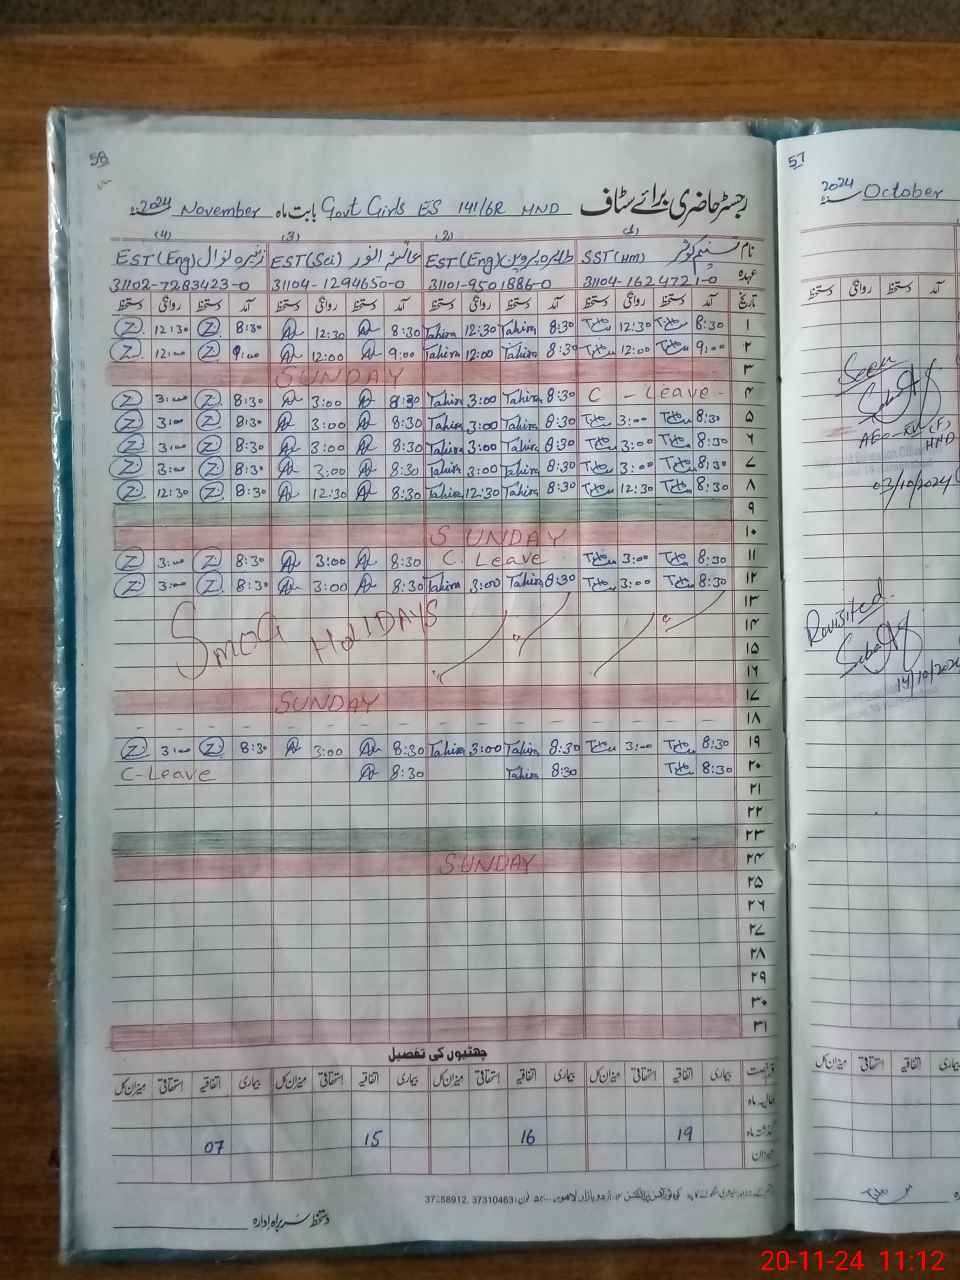 58
57
رجسٹر حاضری برائے سٹاف Govt Girls ES 141/6R HND بابت ماہ November 2024
2024 October
(1) (2) (3) (4)
نام SST (HM) EST (Eng) EST (Sci) EST (Eng)
عہدہ 31104-1624721-0 31101-9501886-0 31104-1294650-0 31102-7283423-0
تاریخ آمد دستخط روانگی دستخط آمد دستخط روانگی دستخط آمد دستخط روانگی دستخط آمد دستخط روانگی دستخط
۱ 8:30 12:30 8:30 Tahira 12:30 Tahira 8:30 12:30 8:30 Z 12:30 Z
۲ 9:00 12:00 8:30 Tahira 12:00 Tahira 9:00 12:00 9:00 Z 12:00 Z
۳ SUNDAY
۴ C - Leave - 8:30 Tahira 3:00 Tahira 8:30 3:00 8:30 Z 3:00 Z
۵ 8:30 3:00 8:30 Tahira 3:00 Tahira 8:30 3:00 8:30 Z 3:00 Z
۶ 8:30 3:00 8:30 Tahira 3:00 Tahira 8:30 3:00 8:30 Z 3:00 Z
۷ 8:30 3:00 8:30 Tahira 3:00 Tahira 8:30 3:00 8:30 Z 3:00 Z
۸ 8:30 12:30 8:30 Tahira 12:30 Tahira 8:30 12:30 8:30 Z 12:30 Z
۹
۱۰ SUNDAY
۱۱ 8:30 3:00 C. Leave 8:30 3:00 8:30 Z 3:00 Z
۱۲ 8:30 3:00 8:30 Tahira 3:00 Tahira 8:30 3:00 8:30 Z 3:00 Z
۱۳
۱۴ SMOG HOLIDAYS
۱۵
۱۶
۱۷ SUNDAY
۱۸
۱۹ 8:30 3:00 8:30 Tahira 3:00 Tahira 8:30 3:00 8:30 Z 3:00 Z
۲۰ 8:30 8:30 Tahira 8:30 C-Leave
۲۱
۲۲
۲۳
۲۴ SUNDAY
۲۵
۲۶
۲۷
۲۸
۲۹
۳۰
۳۱
چھٹیوں کی تفصیل
بیماری اتفاقیہ استحقاقی میزان کل بیماری اتفاقیہ استحقاقی میزان کل بیماری اتفاقیہ استحقاقی میزان کل بیماری اتفاقیہ استحقاقی میزان کل
حالیہ ماہ
گذشتہ ماہ 19 16 15 07
میزان
دستخط سربراہ ادارہ
آمد دستخط روانگی دستخط
Seen
HND
03/10/2024
Revisited
14/10/2024
اتفاقیہ استحقاقی میزان کل
20-11-24 11:12